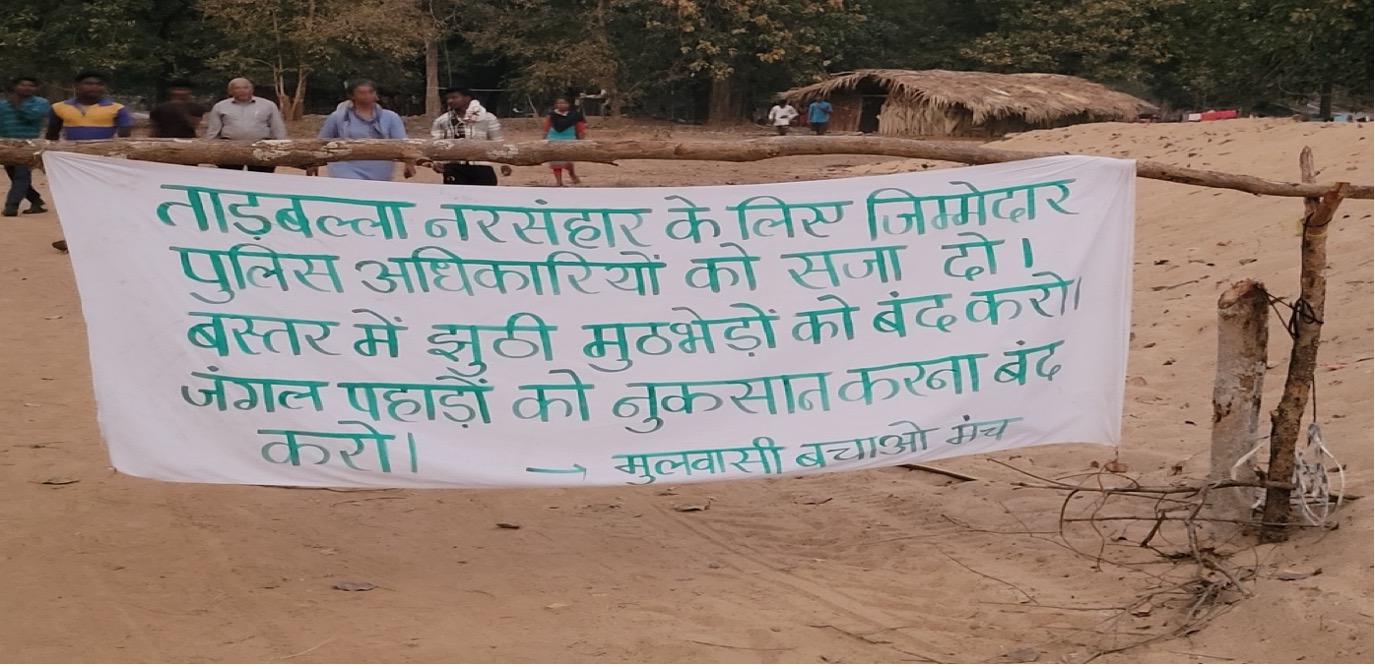 ताड़बल्ला नरसंहार के लिए जिम्मेदार
पुलिस अधिकारियों को सजा दो।
बस्तर में झुठी मुठभेड़ों को बंद करो।
जंगल पहाड़ों को नुकसान करना बंद
करो। → मुलवासी बचाओ मंच